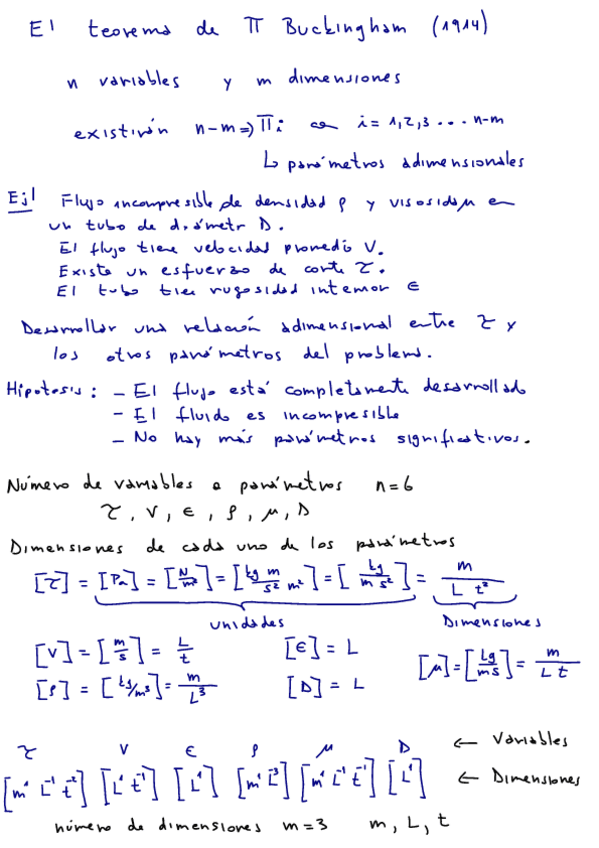 El teorema de Π Buckingham (1914)
n variables y m dimensiones
existirán n-m => Πi con i = 1,2,3 ... n-m
↳ parámetros adimensionales
Ej1 Flujo incompresible de densidad ρ y viscosidad μ en
un tubo de diámetr D.
El flujo tiene velocidad promedio V.
Existe un esfuerzo de corte τ.
El tubo tien rugosidad interior ϵ
Desarrollar una relación adimensional entre τ y
los otros parámetros del problema.
Hipotesis: – El flujo está completamente desarrollado
– El fluido es incompresible
– No hay más parámetros significativos.
Número de variables o parámetros n=6
τ, V, ϵ, ρ, μ, D
Dimensiones de cada uno de los parámetros
[τ] = [Pa] = [N/m²] = [kg m / s² m²] = [kg / m s²] = m / L t²
unidades Dimensiones
[V] = [m/s] = L/t [ϵ] = L [μ] = [kg/ms] = m / L t
[ρ] = [kg/m³] = m/L³ [D] = L
τ V ϵ ρ μ D ← Variables
[m¹ L⁻¹ t⁻²] [L¹ t⁻¹] [L¹] [m¹ L⁻³] [m¹ L⁻¹ t⁻¹] [L¹] ← Dimensiones
número de dimensiones m=3 m, L, t